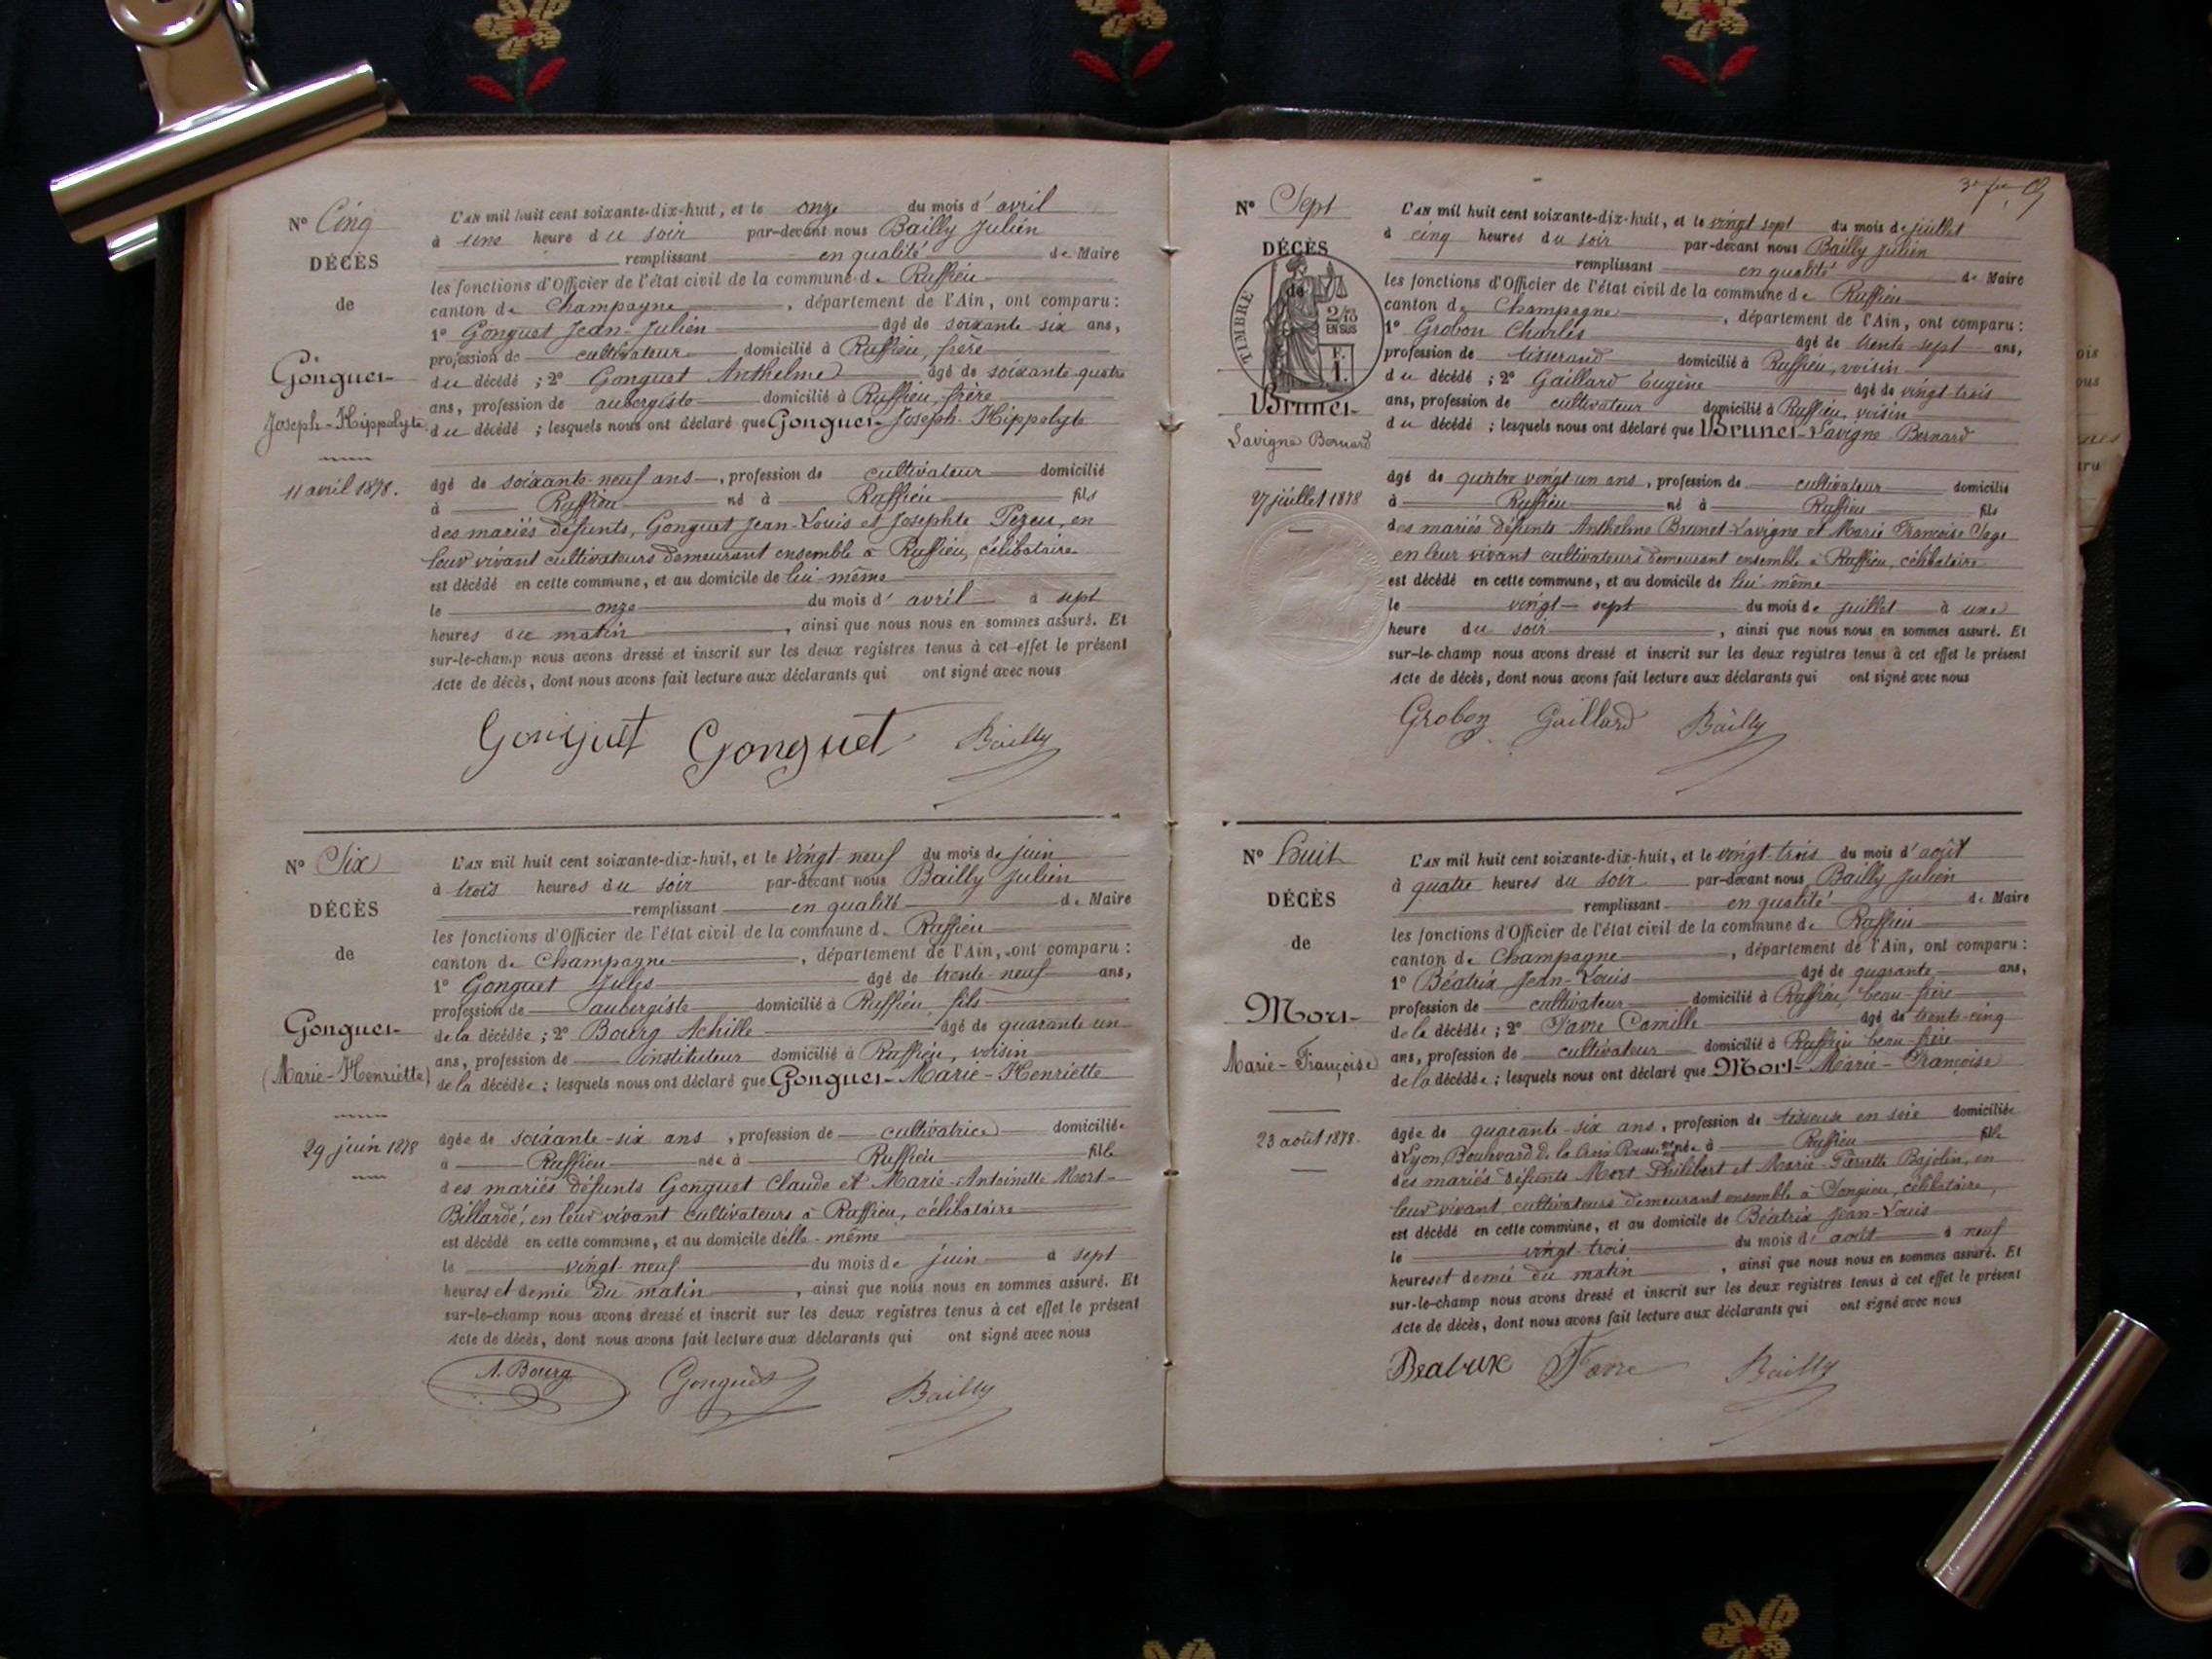 N° Cinq
DÉCÈS
de
Gonguet
Joseph-Hippolyte
11 avril 1878.
L'AN mil huit cent soixante-dix-huit, et le onze du mois d'avril
à une heure du soir par-devant nous Bailly Julien
remplissant en qualité de Maire
les fonctions d'Officier de l'état civil de la commune de Ruffieu
canton de Champagne, département de l'Ain, ont comparu :
1° Gonguet Jean-Julien âgé de soixante-six ans,
profession de cultivateur domicilié à Ruffieu, frère
du décédé ; 2° Gonguet Anthelme âgé de soixante-quatre
ans, profession de aubergiste domicilié à Ruffieu, frère
du décédé ; lesquels nous ont déclaré que Gonguet Joseph-Hippolyte
âgé de soixante-neuf ans, profession de cultivateur domicilié
à Ruffieu né à Ruffieu fils
des mariés défunts, Gonguet Jean-Louis et Josephte Pezeu, en
leur vivant cultivateurs demeurant ensemble à Ruffieu, célibataire
est décédé en cette commune, et au domicile de lui-même
le onze du mois d'avril à sept
heures du matin, ainsi que nous nous en sommes assuré. Et
sur-le-champ nous avons dressé et inscrit sur les deux registres tenus à cet effet le présent
Acte de décès, dont nous avons fait lecture aux déclarants qui ont signé avec nous
Gonguet Gonguet Bailly
N° Six
DÉCÈS
de
Gonguet
(Marie-Henriette)
29 juin 1878
L'AN mil huit cent soixante-dix-huit, et le vingt-neuf du mois de juin
à trois heures du soir par-devant nous Bailly Julien
remplissant en qualité de Maire
les fonctions d'Officier de l'état civil de la commune de Ruffieu
canton de Champagne, département de l'Ain, ont comparu :
1° Gonguet Jules âgé de trente-neuf ans,
profession de aubergiste domicilié à Ruffieu, fils
de la décédée ; 2° Bourg Achille âgé de quarante-un
ans, profession de instituteur domicilié à Ruffieu, voisin
de la décédée ; lesquels nous ont déclaré que Gonguet Marie-Henriette
âgée de soixante-six ans, profession de cultivatrice domiciliée
à Ruffieu née à Ruffieu fille
des mariés défunts Gonguet Claude et Marie-Antoinette Mort-
Billardé, en leur vivant cultivateurs à Ruffieu, célibataire
est décédé en cette commune, et au domicile d'elle-même
le vingt-neuf du mois de juin à sept
heures et demie du matin, ainsi que nous nous en sommes assuré. Et
sur-le-champ nous avons dressé et inscrit sur les deux registres tenus à cet effet le présent
Acte de décès, dont nous avons fait lecture aux déclarants qui ont signé avec nous
A. Bourg Gonguet Bailly
N° Sept
DÉCÈS
de
TIMBRE
2/10
EN SUS
F.
1.
Brunet
Lavigne Bernard
27 juillet 1878
L'AN mil huit cent soixante-dix-huit, et le vingt-sept du mois de juillet
à cinq heures du soir par-devant nous Bailly Julien
remplissant en qualité de Maire
les fonctions d'Officier de l'état civil de la commune de Ruffieu
canton de Champagne, département de l'Ain, ont comparu :
1° Grobon Charles âgé de trente-sept ans,
profession de tisserand domicilié à Ruffieu, voisin
du décédé ; 2° Gaillard Eugène âgé de vingt-trois
ans, profession de cultivateur domicilié à Ruffieu, voisin
du décédé ; lesquels nous ont déclaré que Brunet-Lavigne Bernard
âgé de quatre vingt-un ans, profession de cultivateur domicilié
à Ruffieu né à Ruffieu fils
des mariés défunts Anthelme Brunet-Lavigne et Marie Françoise Sage
en leur vivant cultivateurs demeurant ensemble à Ruffieu, célibataire
est décédé en cette commune, et au domicile de lui-même
le vingt-sept du mois de juillet à une
heure du soir, ainsi que nous nous en sommes assuré. Et
sur-le-champ nous avons dressé et inscrit sur les deux registres tenus à cet effet le présent
Acte de décès, dont nous avons fait lecture aux déclarants qui ont signé avec nous
Grobon Gaillard Bailly
N° Huit
DÉCÈS
de
Mort
Marie-Françoise
23 août 1878.
L'AN mil huit cent soixante-dix-huit, et le vingt-trois du mois d'août
à quatre heures du soir par-devant nous Bailly Julien
remplissant en qualité de Maire
les fonctions d'Officier de l'état civil de la commune de Ruffieu
canton de Champagne, département de l'Ain, ont comparu :
1° Béatrix Jean-Louis âgé de quarante ans,
profession de cultivateur domicilié à Ruffieu, beau-frère
de la décédée ; 2° Favre Camille âgé de trente-cinq
ans, profession de cultivateur domicilié à Ruffieu beau-frère
de la décédée ; lesquels nous ont déclaré que Mort Marie-Françoise
âgée de quarante-six ans, profession de tisseuse en soie domiciliée
à Lyon, Boulevard de la Croix Rousse née à Ruffieu fille
des mariés défunts Mort Philibert et Marie-Pierrette Bajolin, en
leur vivant, cultivateurs demeurant ensemble à Songieu, célibataire,
est décédé en cette commune, et au domicile de Béatrix Jean-Louis
le vingt-trois du mois d'août à neuf
heures et demie du matin, ainsi que nous nous en sommes assuré. Et
sur-le-champ nous avons dressé et inscrit sur les deux registres tenus à cet effet le présent
Acte de décès, dont nous avons fait lecture aux déclarants qui ont signé avec nous
Beatrix Favre Bailly